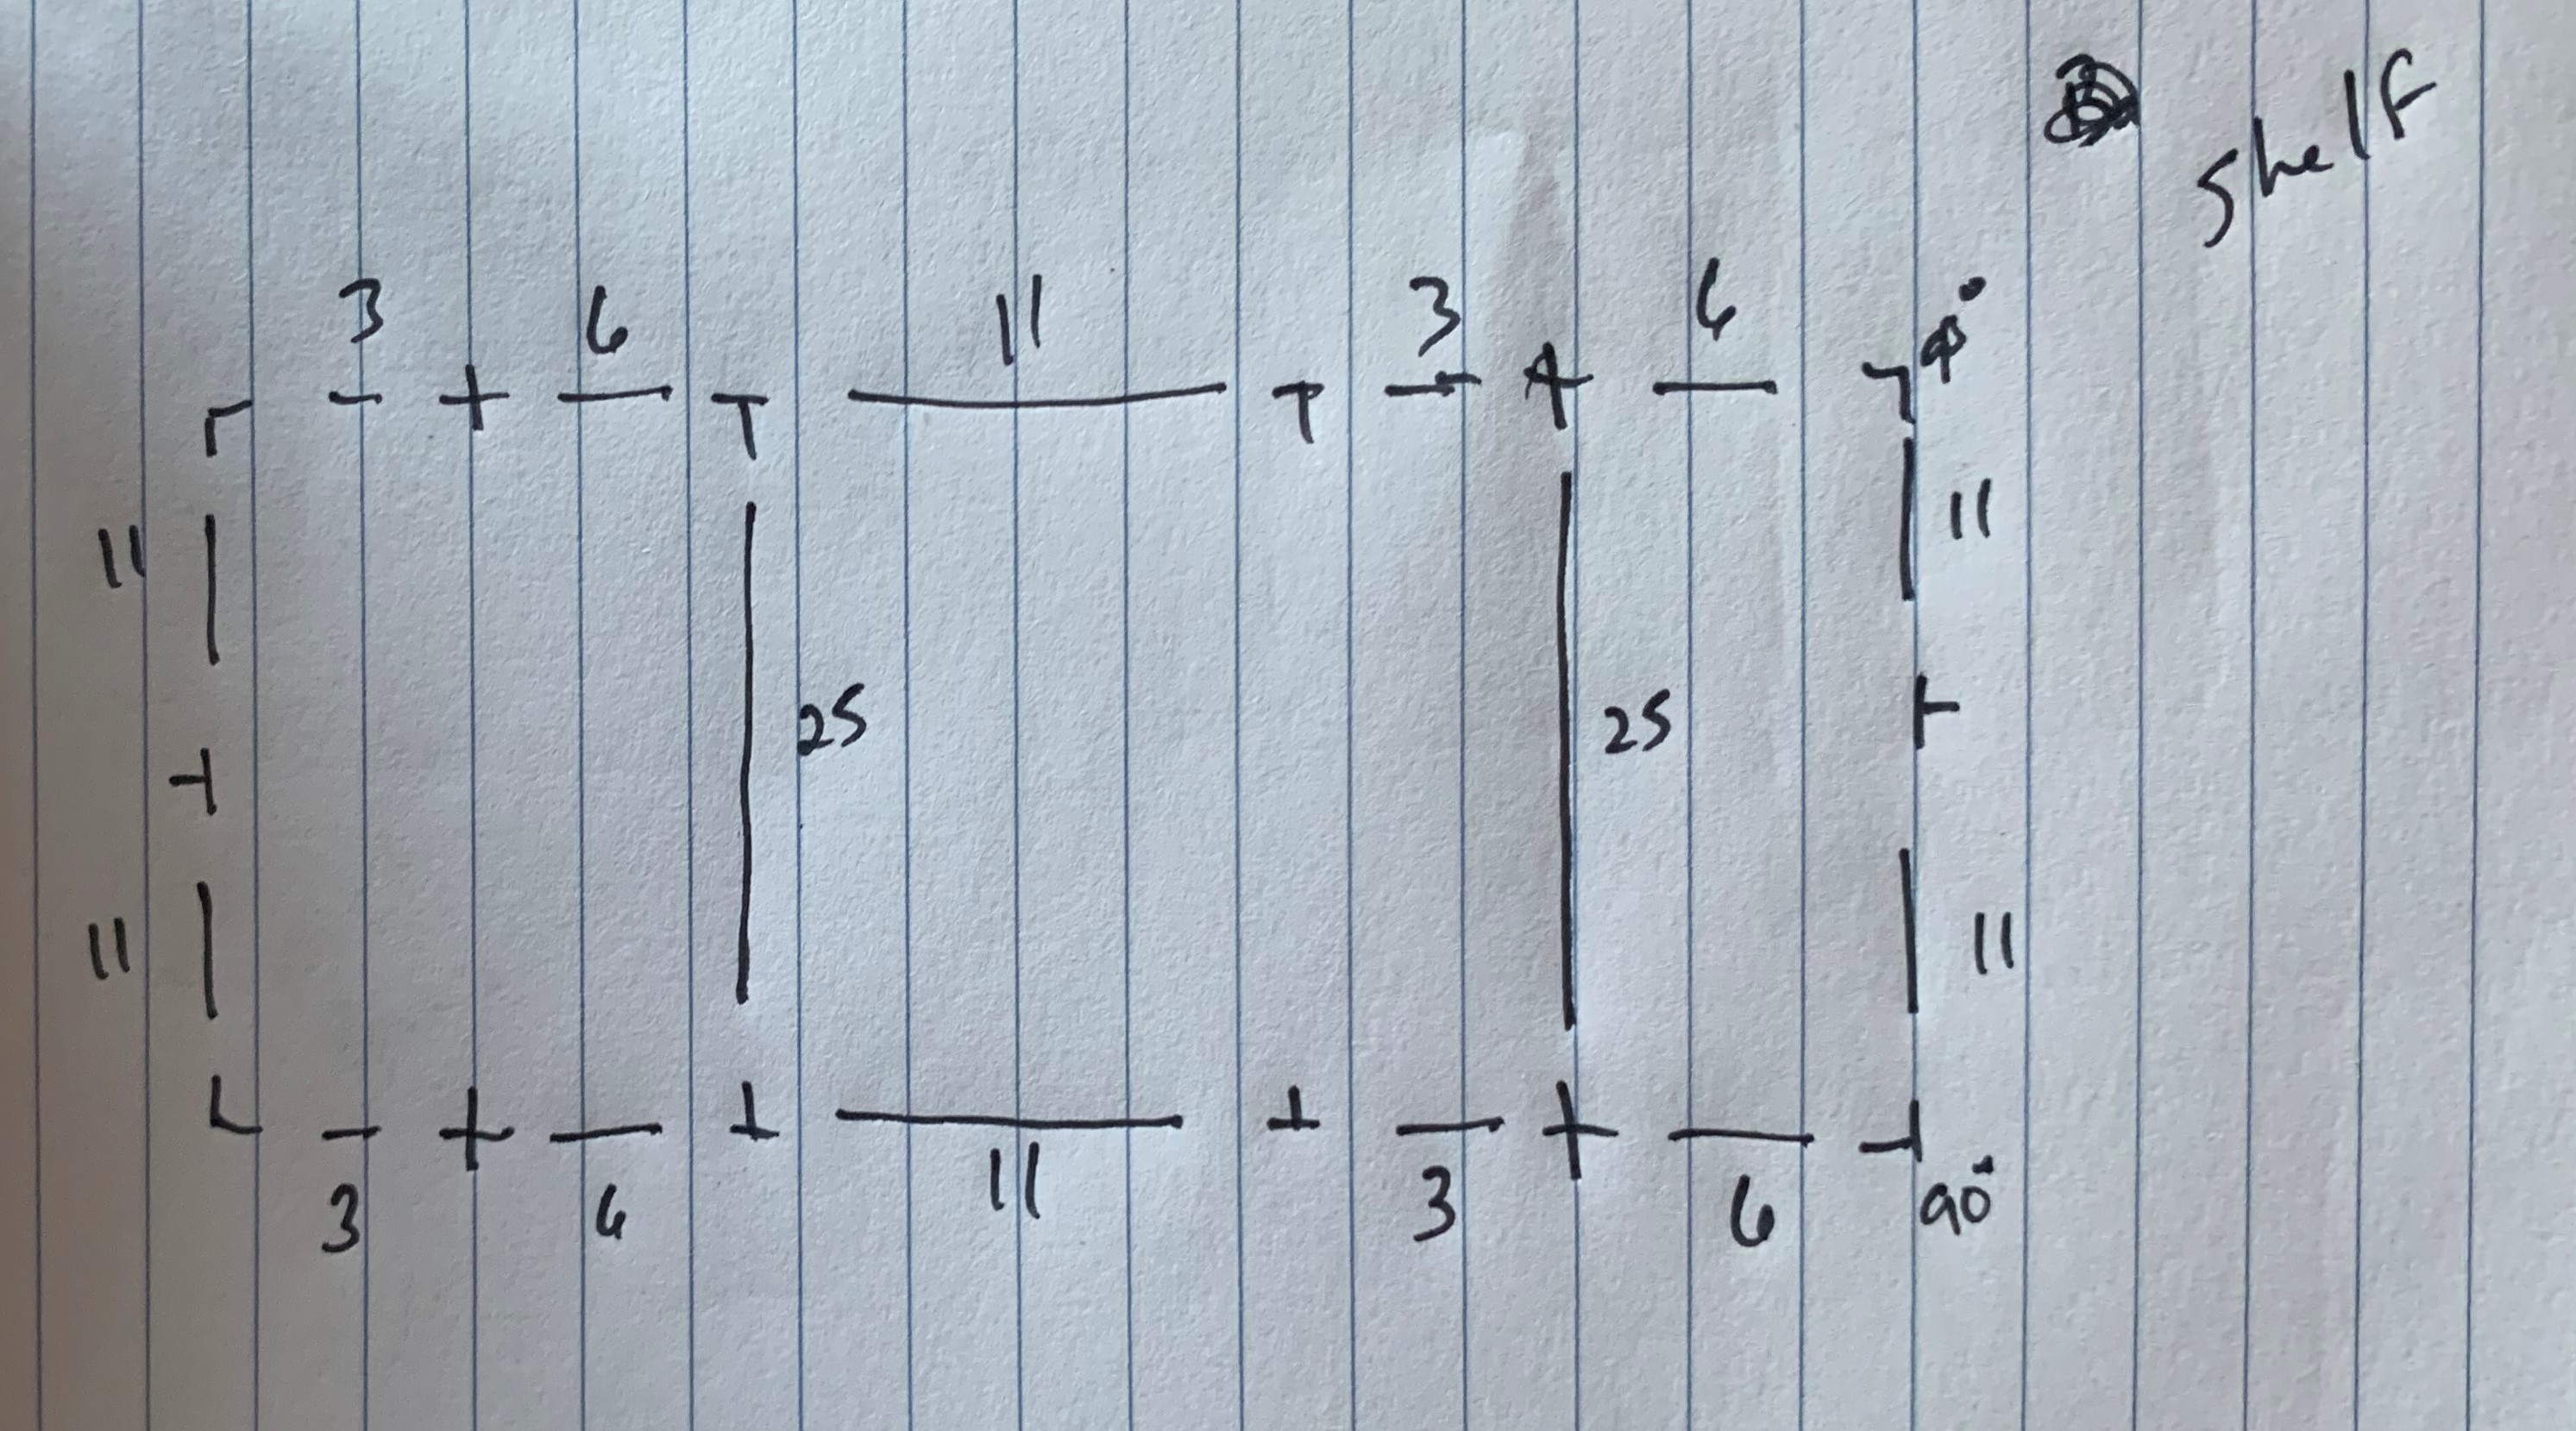 shelf
3 6 11 3 6 90°
11 11
25 25
11 11
3 6 11 3 6 90°